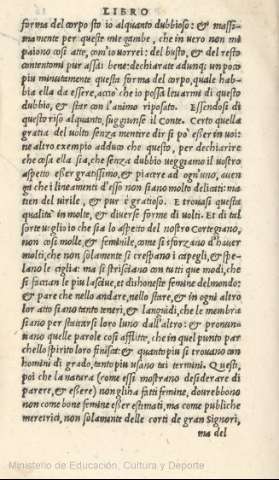 LIBRO
forma del corpo sto io alquanto dubbioso: & massi-
mamente per queste mie gambe, che in vero non mi
paiono così atte, com'io vorrei: del busto, & del resto
contentomi pur assai bene: dechiarate adunq; un poco
piu minutamente questa forma del corpo, quale hab-
bia ella da essere, accio che io possa levarmi di questo
dubbio, & star con l'animo riposato. Essendosi di
questo riso alquanto, suggiunse il Conte. Certo quella
gratia del volto senza mentire dir si po esser in voi:
ne altro exempio adduco che questo, per dechiarire
che cosa ella sia, che senza dubbio veggiamo il vostro
aspetto esser gratissimo, & piacere ad ogn'uno, aven
ga che i lineamenti d'esso non siano molto delicati: ma
tien del virile, & pur è gratioso. E trovasi questa
qualita in molte, & diverse forme di volti. Et di tal
sorte voglio io che sia lo aspetto del nostro Cortegiano,
non così molle, & feminile, come si sforzano d'haver
molti, che non solamente si crespano i capegli, & spe-
lano le ciglia: ma si strisciano con tutti que modi, che
si faccian le piu lascive, et dishoneste femine del mondo:
& pare che nello andare, nello stare, & in ogni altro
lor atto siano tanto teneri, & languidi, che le membra
siano per staccarsi loro luno dall'altro: & pronun-
tiano quelle parole così afflitte, che in quel punto par
che lo spirito loro finisca: & quanto piu si trovano con
homini di grado, tanto piu usano tai termini. Questi,
poi che la natura (come essi mostrano desiderare di
parere, & essere) non gli ha fatti femine, dovrebbono
non come bone femine esser estimati, ma come publiche
meretrici, non solamente delle corti de gran Signori,
ma del
Ministerio de Educación, Cultura y Deporte